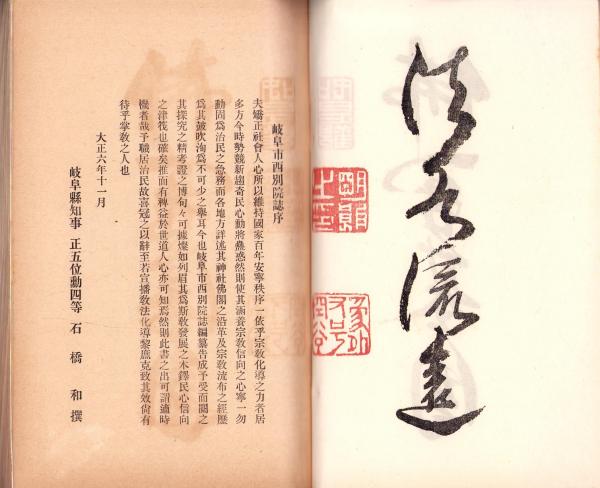 法水流遠
岐阜市西別院誌序
夫矯正社會人心所以維持國家百年安寧秩序一依乎宗敎化導之力者居
多方今時勢競新趨奇民心動將蠱惑然則使其涵養宗敎信向之心寧一勿
動固爲治民之急務而各地方詳述其神社佛閣之沿革及宗敎流布之經歷
爲其鼓吹洵爲不可少之擧耳今也岐阜市西別院誌編纂告成予受而閱之
其探究之精考證之博句々可據燦如列眉其爲斯敎發展之木鐸民心信向
之津筏也確矣推而有裨益於世道人心亦可知焉然則此書之出可謂適時
機者哉予職居治民故喜冠之以辭至若宣播敎法化導黎庶克致其效尙有
待乎掌敎之人也
大正六年十一月
岐阜縣知事 正五位勳四等 石橋和撰